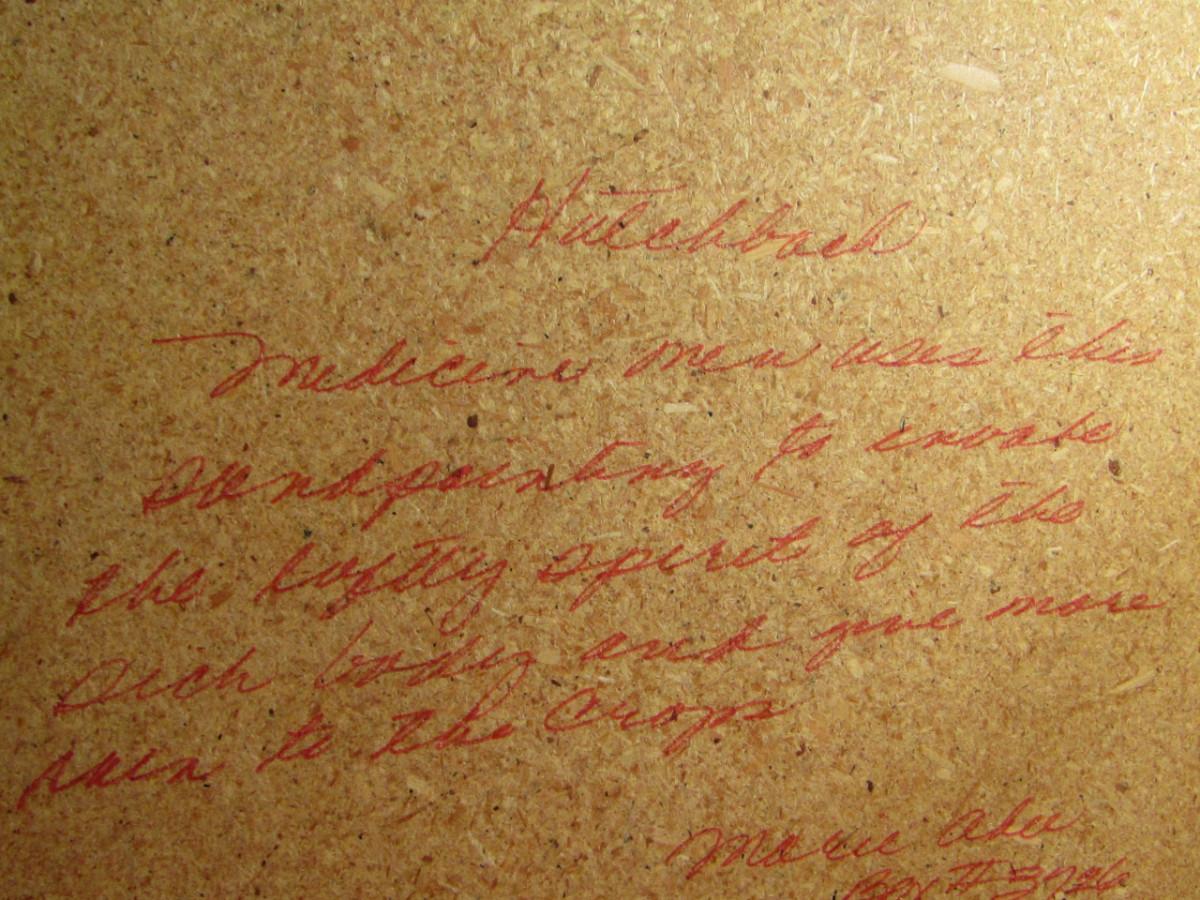 Hutchback
Medicine men uses this
sandpainting to invoke
the loftly spirit of the
sick body and give more
rain to the crops
Marie
Box #